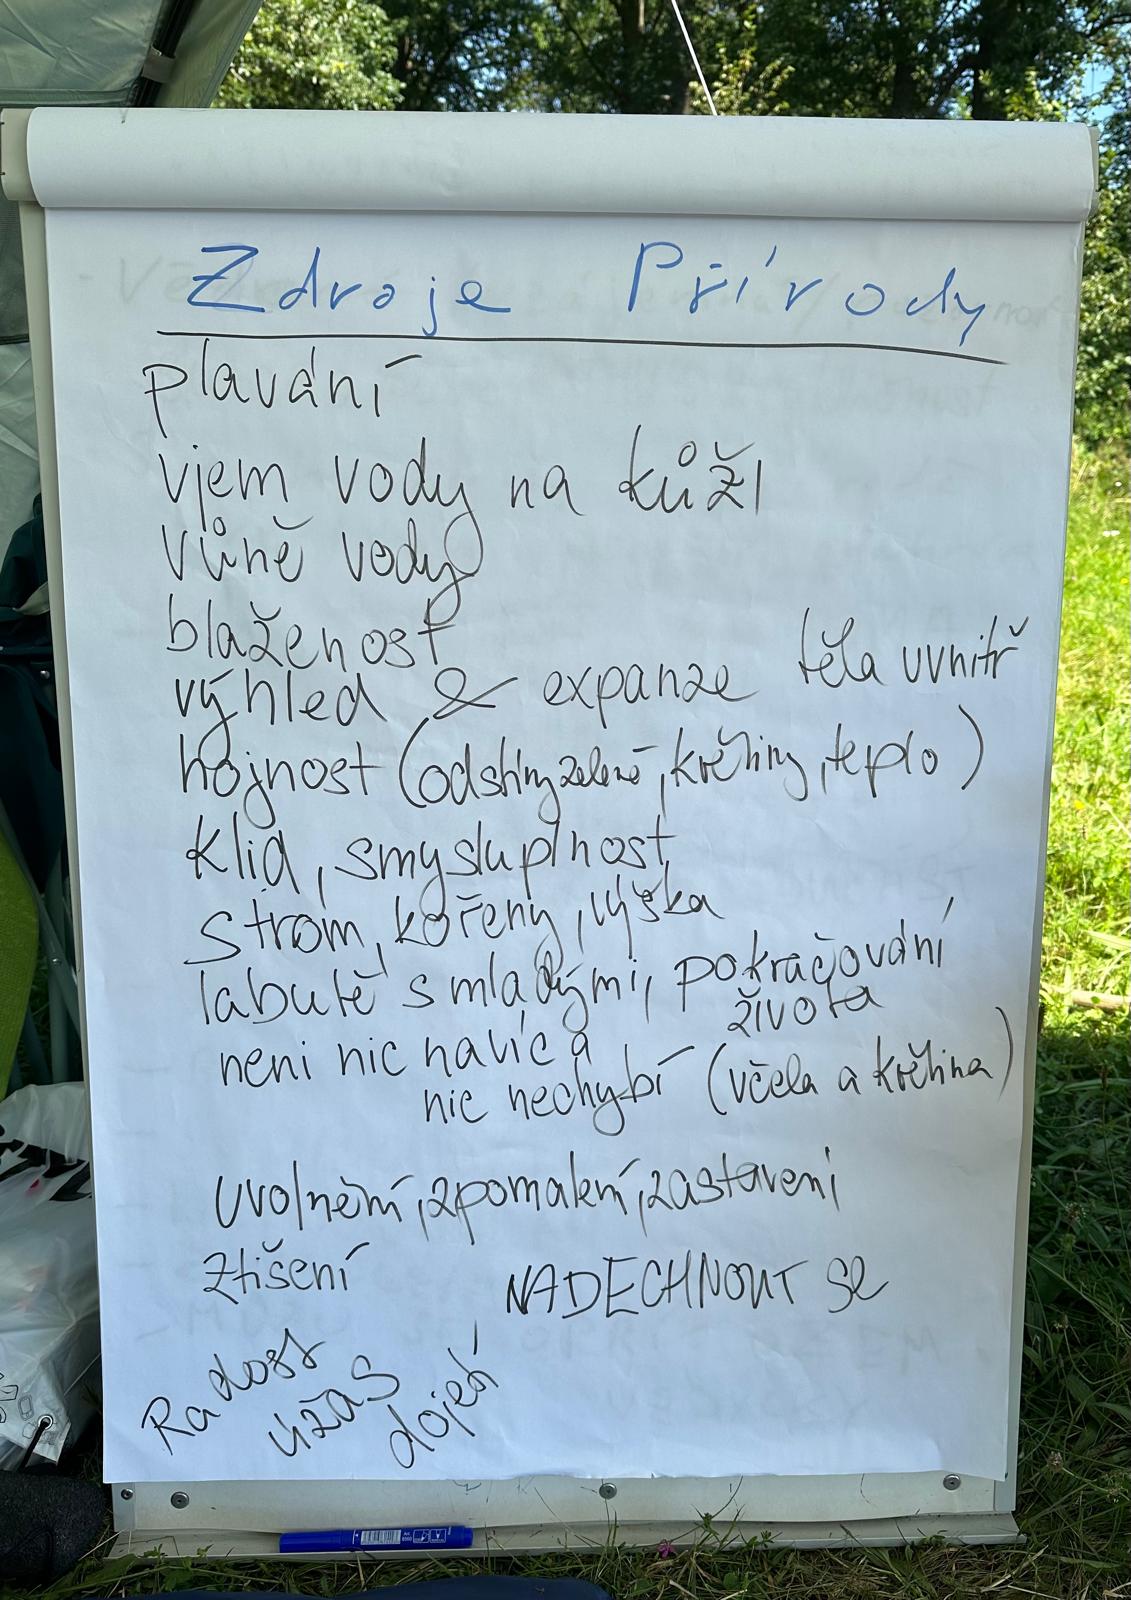 Zdroje Přírody
plavání
vjem vody na kůži
vůně vody
blaženost
výhled & expanze těla uvnitř
hojnost (odstíny zelené, květiny, teplo)
Klid, smysluplnost
strom, kořeny, výška
labutě s mladými, pokračování
života
neni nic navíc a
nic nechybí (včela a květina)
uvolnění, zpomalení, zastavení
Ztišení
NADECHNOUT SE
Radost
úžas
dojetí